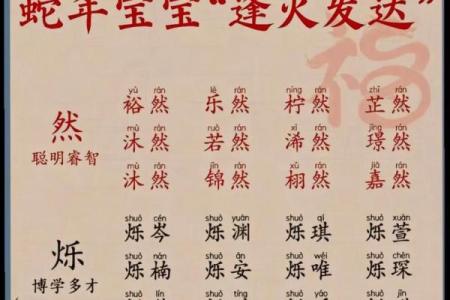 蛇年宝宝“逢火发达”
福
yù rán lè rán níng rán zhǐ rán
裕然 乐然 柠然 芷然
然
mù rán ruò rán xī rán jǐng rán
沐然 若然 浠然 璟然
聪明睿智
mù rán jǐn rán xǔ rán jiā rán
沐然 锦然 栩然 嘉然
shuò cén shuò yuān shuò qí shuò xuān
烁岑 烁渊 烁琪 烁萱
烁
shuò nán shuò ān shuò wéi shuò chēn
烁楠 烁安 烁唯 烁琛
博学多才